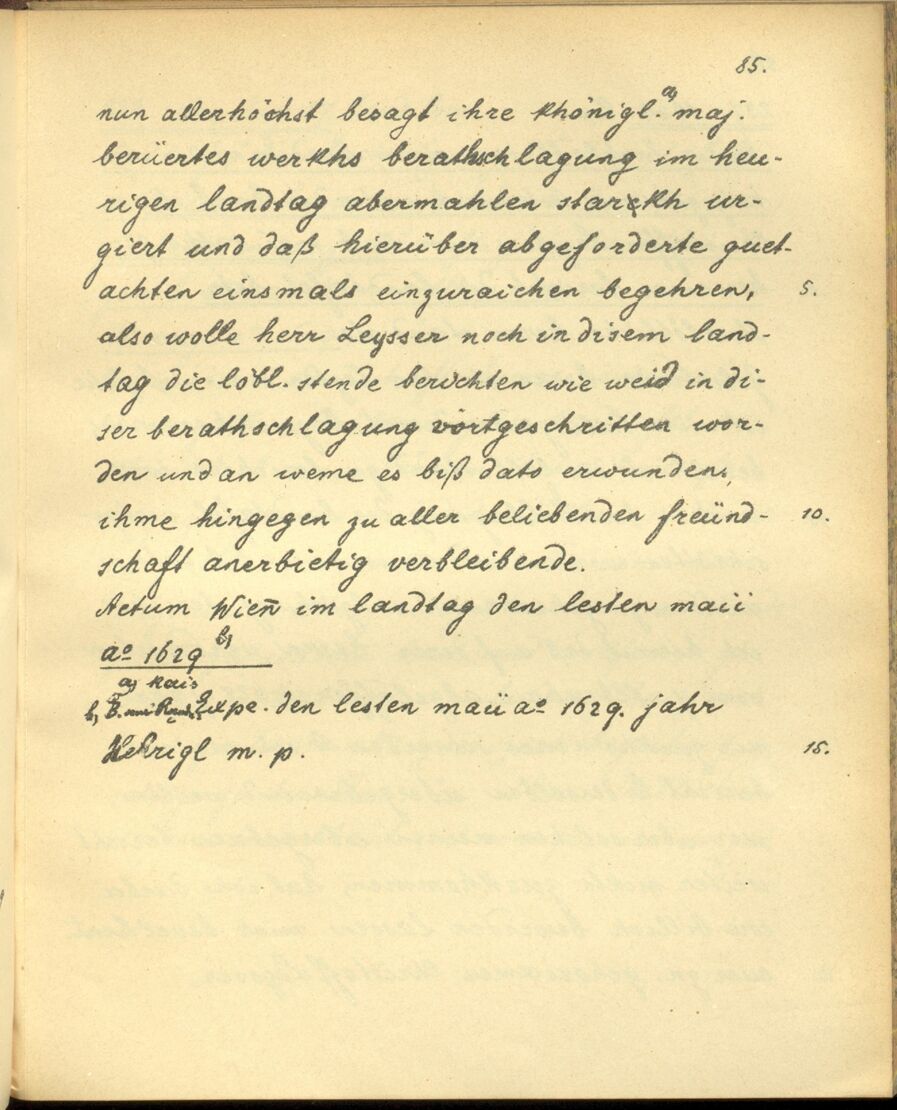 85.
nun allerhöchst besagt ihre khönigl. a) maj.
berüertes werkhs berathschlagung im heu-
rigen landtag abermahlen starkh ur-
giert und daß hierüber abgeforderte guet-
achten einsmals einzuraichen begehren, 5.
also wolle herr Leysser noch in disem land-
tag die löbl. stende berichten wie weid in di-
ser berathschlagung vortgeschritten wor-
den und an weme es biß dato erwunden.
ihme hingegen zu aller beliebenden freünd- 10.
schaft anerbietig verbleibende.
Actum Wien̄ im landtag den lesten maii
ao 1629 b)
a) kais
b) B. am Rande: Expe. den lesten maii ao 1629. jahr
m. p. 15.